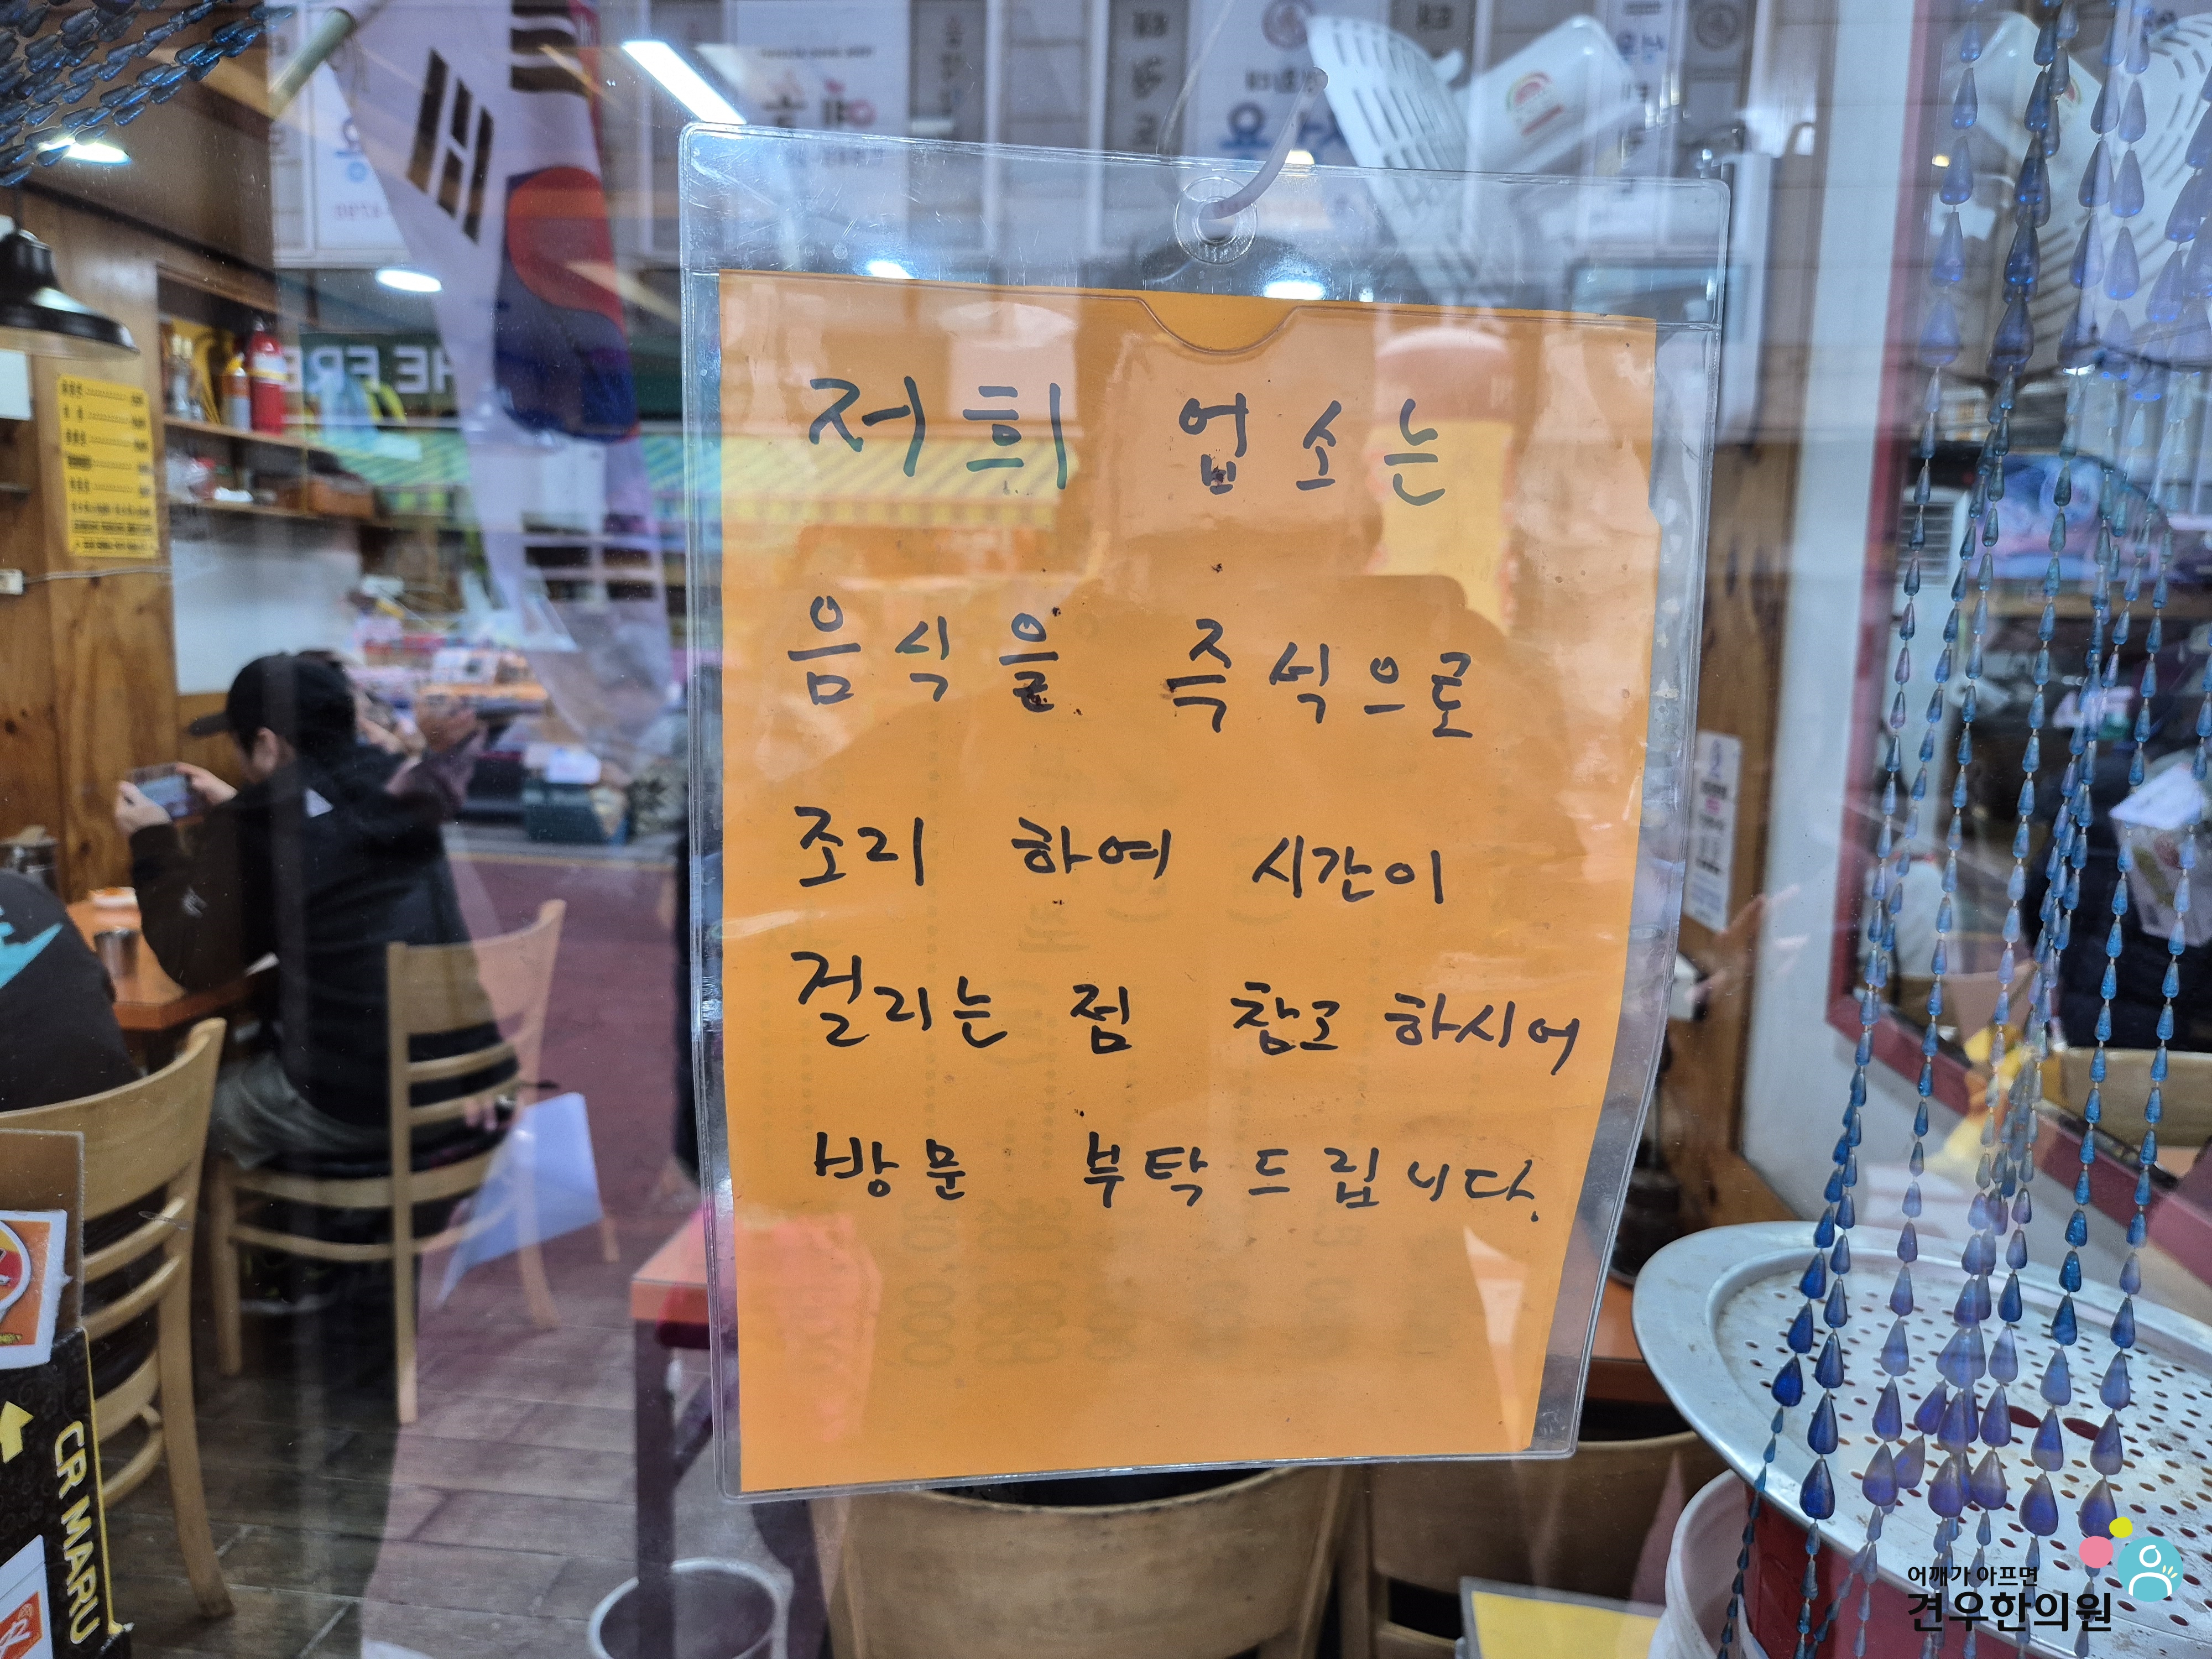 저희 업소는
음식을 즉석으로
조리 하여 시간이
걸리는 점 참고 하시어
방문 부탁드립니다.
CR MARU
어깨가 아프면
견우한의원